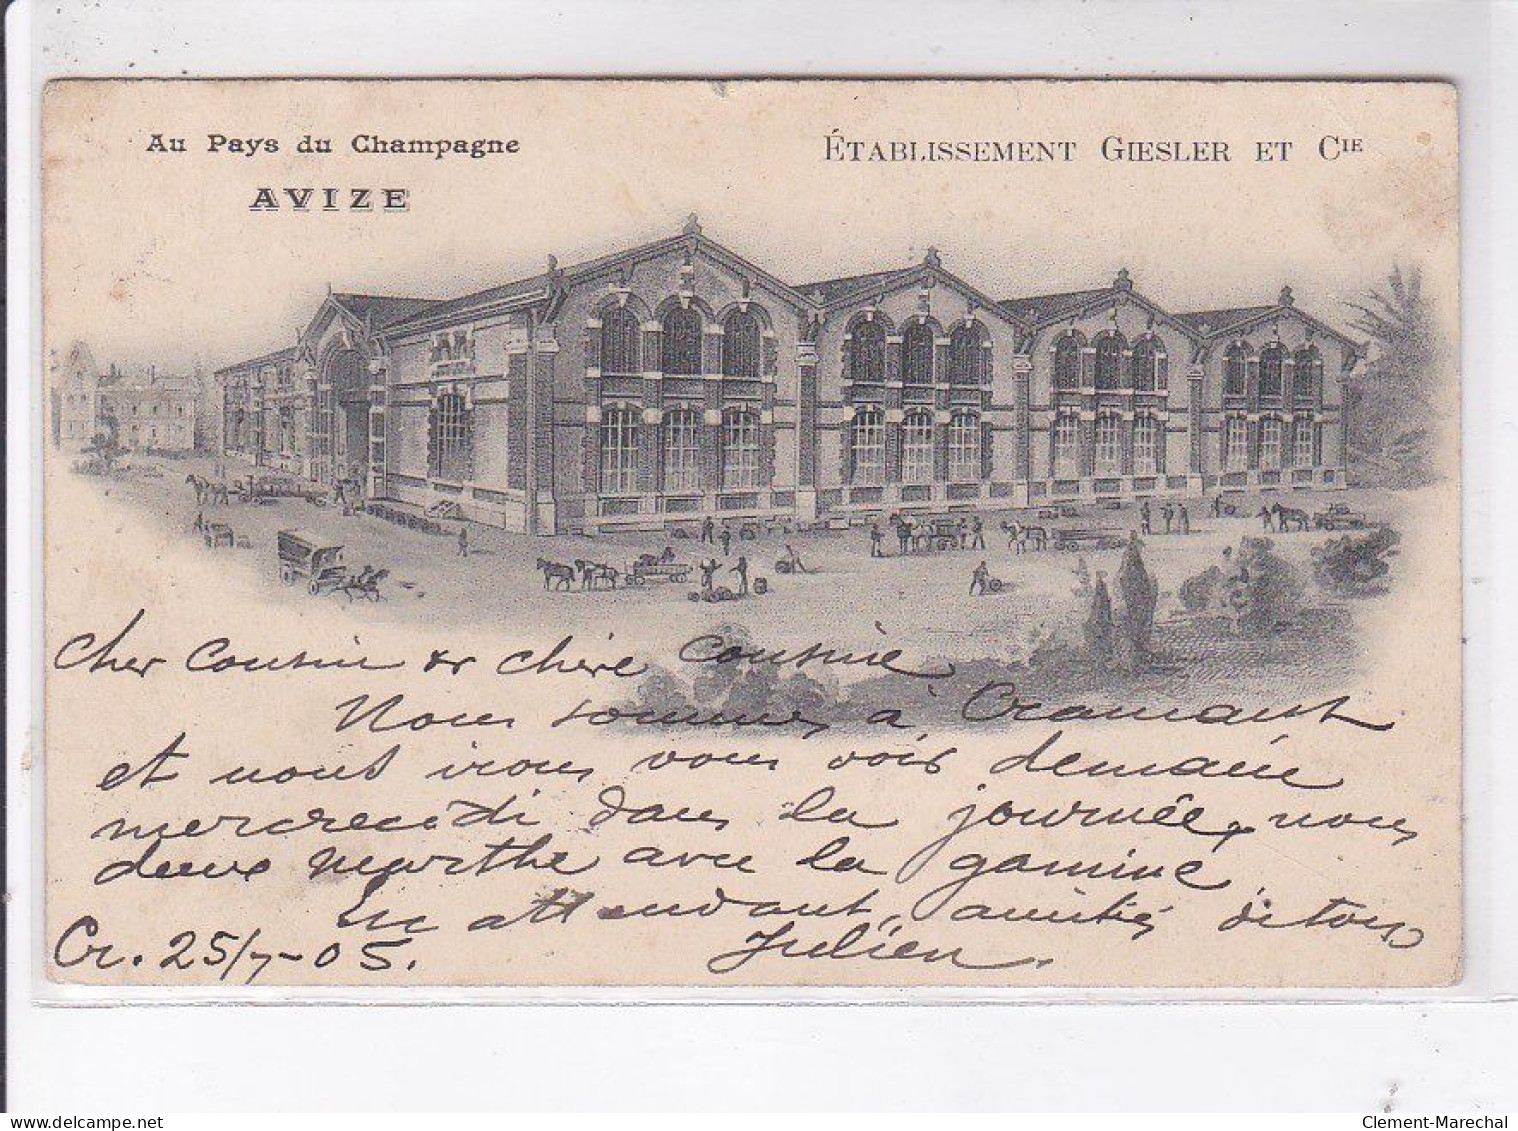 Au Pays du Champagne
AVIZE
ÉTABLISSEMENT GIESLER ET CIE
Cher Cousin & chère Cousine
Nous sommes à Cramant
et nous irons vous voir demain
mercredi dans la journée, nous
deux Marthe avec la gamine.
En attendant, amitiés à tous
Julien.
Cr. 25/7-05.
delcampe.net
Clement-Marechal